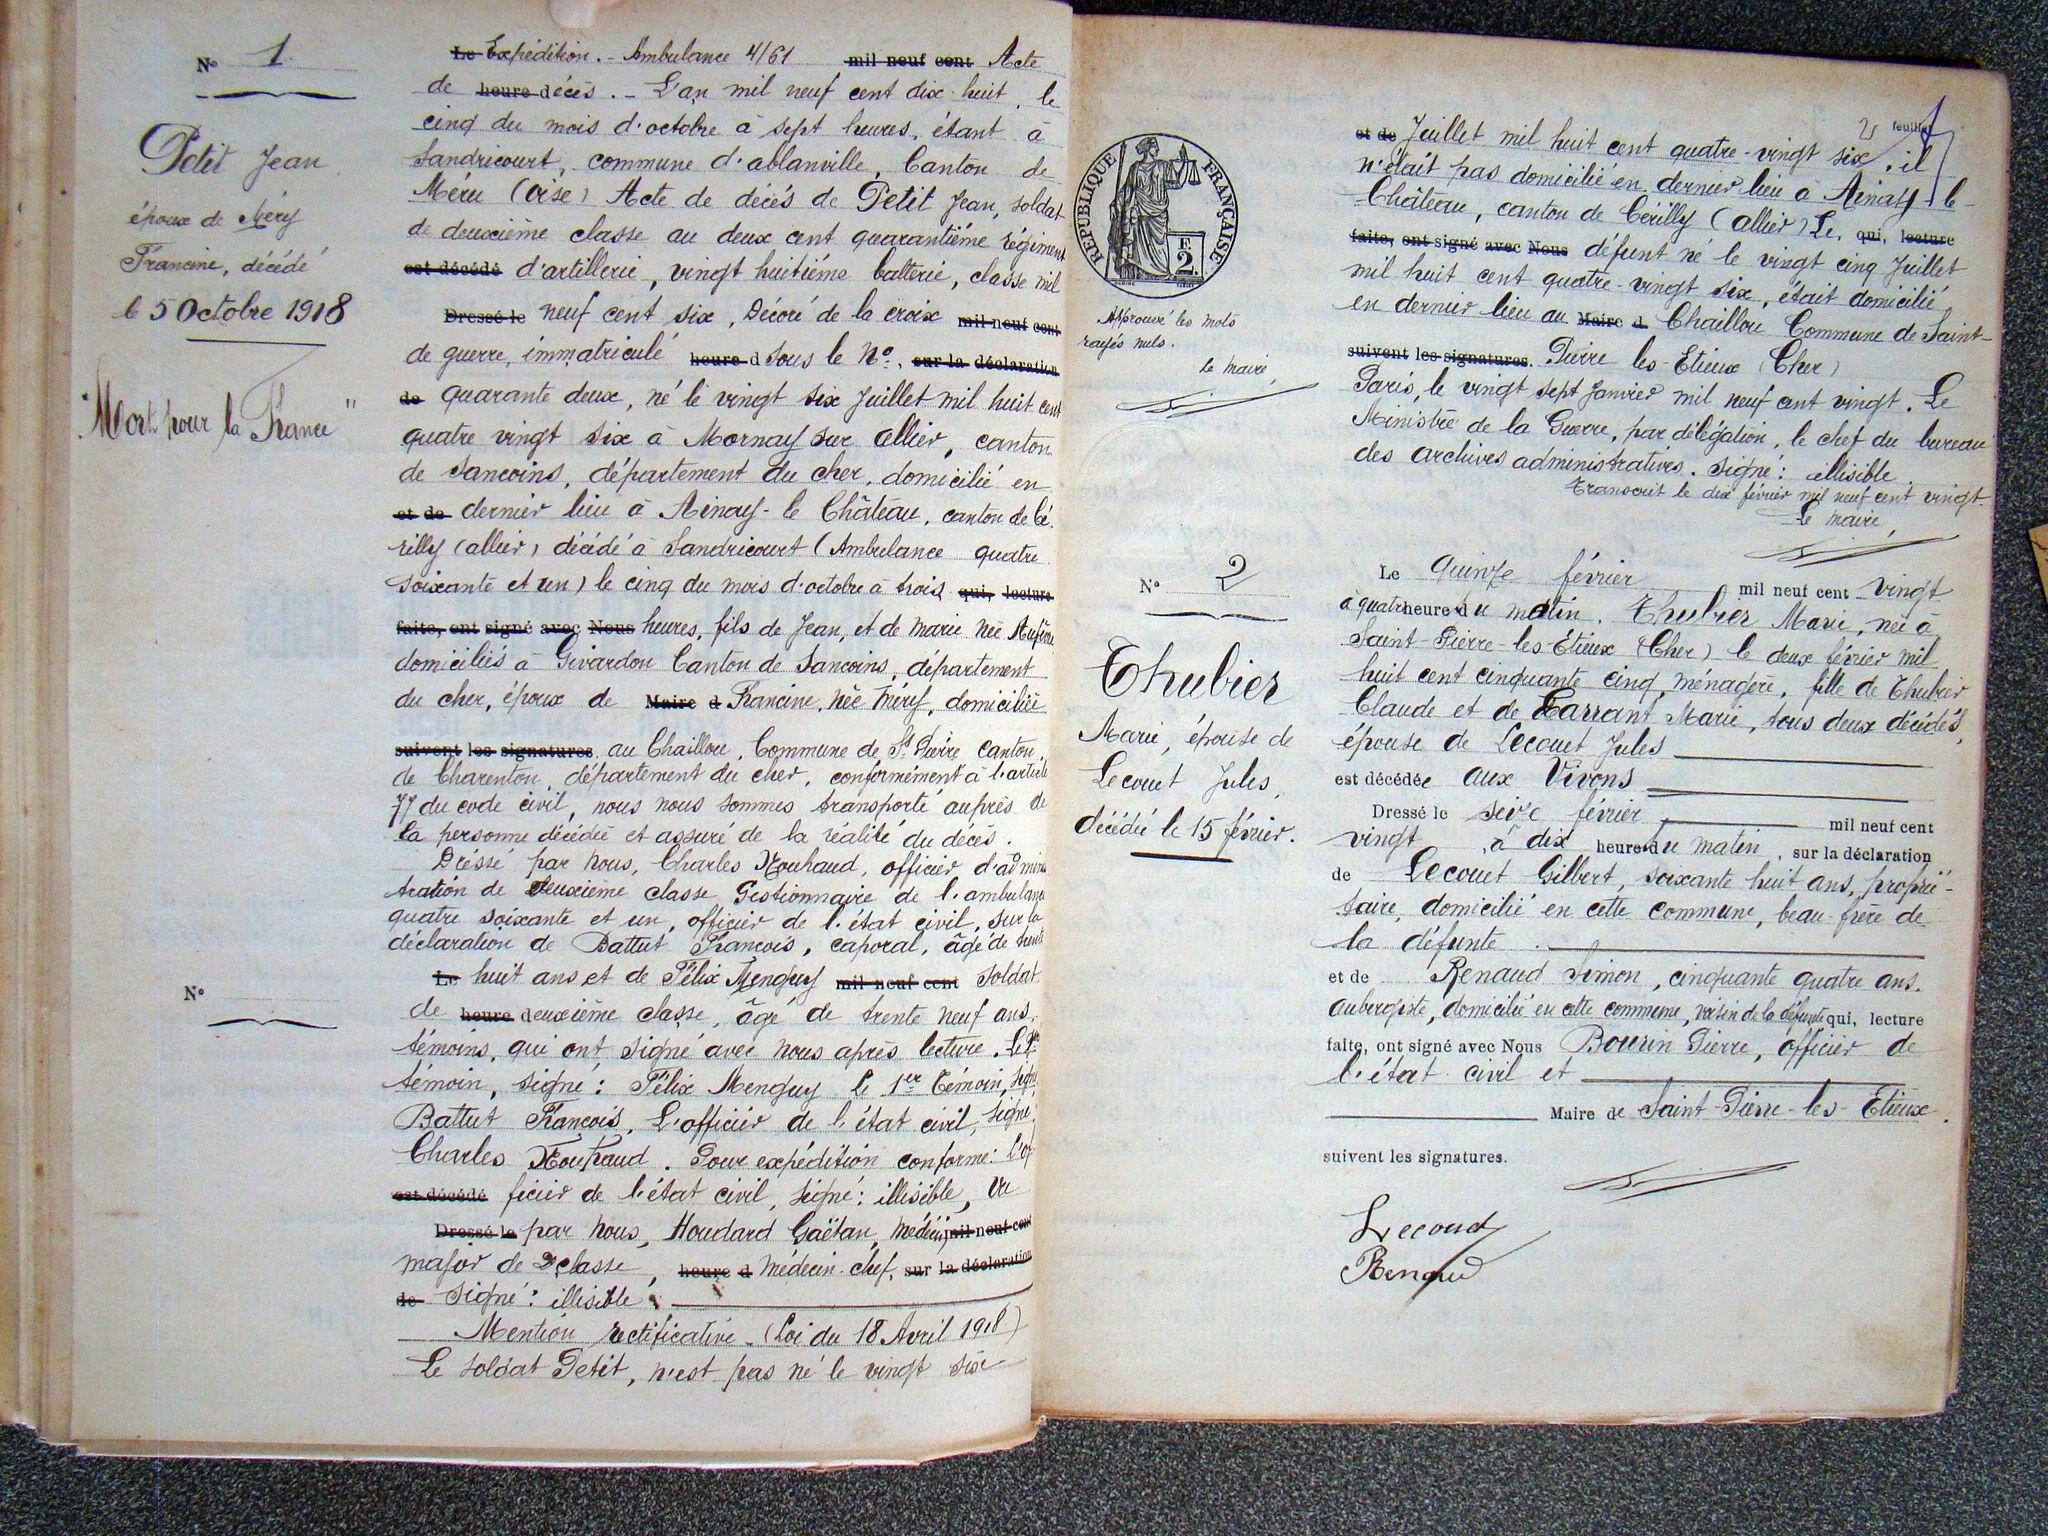 N° 1
Petit Jean
époux de Méry
Francine, décédé
le 5 Octobre 1918
"Mort pour la France"
N°
Le Expédition. - Ambulance 4/61 mil neuf cent Acte
de heure décès. - L'an mil neuf cent dix-huit, le
cinq du mois d'octobre à sept heures, étant à
Sandricourt, commune d'ablanville, Canton de
Méru (Oise) Acte de décès de Petit Jean, soldat
de deuxième classe au deux cent quarantième régiment
est décédé d'artillerie, vingt huitième batterie, classe mil
Dressé le neuf cent six, Décoré de la croix mil neuf cent
de guerre, immatriculé heure d sous le N°, sur la déclaration
de quarante deux, né le vingt six Juillet mil huit cent
quatre vingt six à Mornay sur Allier, canton
de Sancoins, département du cher, domicilié en
et de dernier lieu à Ainay-le Château, canton de Cé-
rilly (allier) décédé à Sandricourt (Ambulance quatre
soixante et un) le cinq du mois d'octobre à trois qui, lecture
faite, ont signé avec Nous heures, fils de Jean, et de marie née
domiciliés à Givardon Canton de Sancoins, département
du cher, époux de Maire d Francine, née Méry, domiciliée
suivent les signatures, au Chaillou, Commune de St Pierre canton
de Charenton, département du cher, conformément à l'article
77 du code civil, nous nous sommes transporté auprès de
la personne décédée et assuré de la réalité du décès.
Dressé par nous, Charles Rouhaud, officier d'adminis
tration de deuxième classe Gestionnaire de l'ambulance
quatre soixante et un, officier de l'état civil, sur la
déclaration de Battut François, caporal, âgé de trente
Le huit ans et de Félix Menguy mil neuf cent soldat
de heure deuxième classe, âgé de trente neuf ans,
témoins, qui ont signé avec nous après lecture. Le 2e
témoin, signé: Félix Menguy le 1er témoin, signé
Battut François, L'officier de l'état civil, signé
Charles Rouhaud. Pour expédition conforme: l'of
est décédé ficier de l'état civil, signé: illisible, Vu
Dressé le par nous, Houdard Gaëtan, médecin mil neuf cent
major de 2e classe, heure d médecin-chef, sur la déclaration
de signé: illisible.
Mention rectificative - (Loi du 18 Avril 1918)
Le soldat Petit, n'est pas né le vingt six
REPUBLIQUE FRANÇAISE
E
2
Approuvé les mots
rayés nuls.
le maire,
N° 2
Thubier
Marie, épouse de
Lecouet Jules,
décédée le 15 février.
2 feuillet
et de Juillet mil huit cent quatre-vingt six, il
n'était pas domicilié en dernier lieu à Ainay-le-
Château, canton de Cérilly (allier) Le, qui, lecture
faite, ont signé avec Nous défunt né le vingt cinq Juillet
mil huit cent quatre-vingt six, était domicilié
en dernier lieu au Maire d Chaillou Commune de Saint-
suivent les signatures. Pierre les-Etieux (Cher)
Paris, le vingt sept Janvier mil neuf cent vingt. Le
Ministre de la Guerre, par délégation, le chef du bureau
des archives administratives. Signé: illisible.
Transcrit le dix février mil neuf cent vingt.
Le maire,
Le quinze février mil neuf cent vingt
à quatre heure du matin. Thubier Marie, née à
Saint-Pierre-les-Etieux (Cher) le deux février mil
huit cent cinquante cinq, ménagère, fille de Thubier
Claude et de Tarrant Marie, tous deux décédés,
épouse de Lecouet Jules
est décédée aux Vivons
Dressé le seize février mil neuf cent
vingt à dix heure du matin, sur la déclaration
de Lecouet Gilbert, soixante huit ans, proprié-
taire, domicilié en cette commune, beau-frère de
la défunte.
et de Renaud Simon, cinquante quatre ans,
aubergiste, domicilié en cette commune, voisin de la défunte qui, lecture
faite, ont signé avec Nous Bourin Pierre, officier de
l'état civil et
Maire de Saint-Pierre-les-Etieux.
suivent les signatures.
Lecouet
Renaud